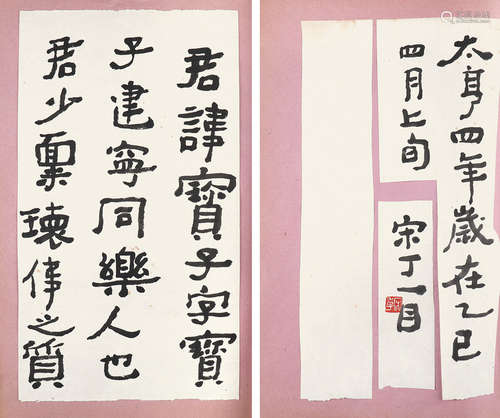 君諱寶子字寶
子建寧同樂人也
君少稟瓌偉之質
太亨四年歲在乙巳
四月上旬
宋丁一目